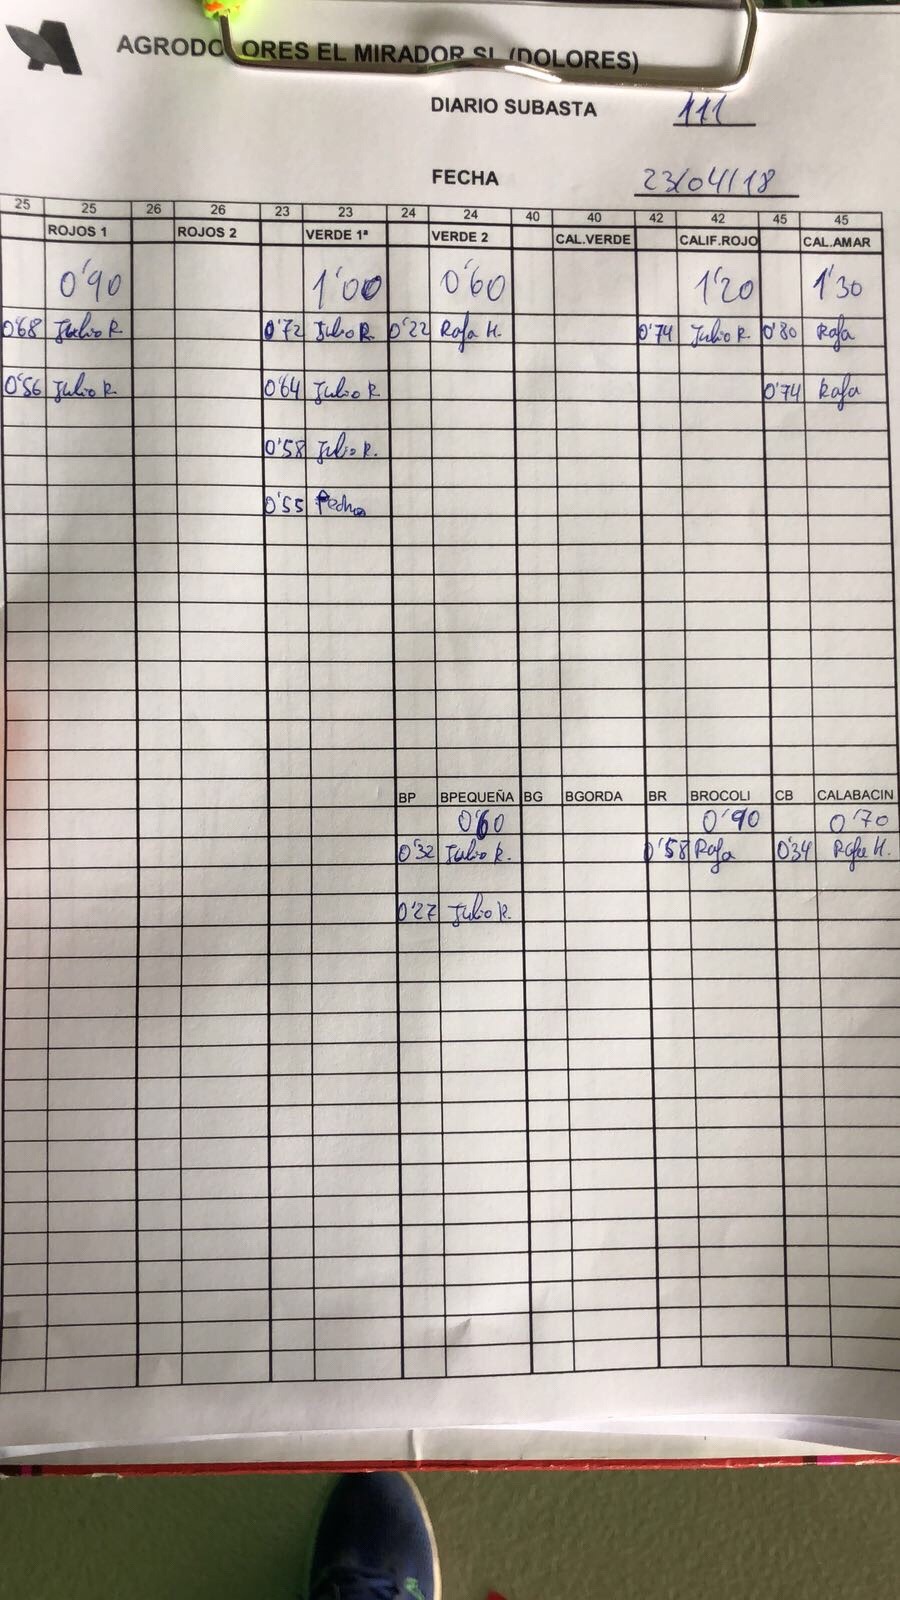 AGRODOLORES EL MIRADOR SL (DOLORES)
DIARIO SUBASTA 111
FECHA 23/04/18
25 25 26 26 23 23 24 24 40 40 42 42 45 45
ROJOS 1 ROJOS 2 VERDE 1ª VERDE 2 CAL.VERDE CALIF.ROJO CAL.AMAR
0'90 1'00 0'60 1'20 1'30
0'68 Julio R. 0'72 Julio R. 0'22 Rafa H. 0'74 Julio R. 0'80 Rafa
0'56 Julio R. 0'64 Julio R 0'74 Rafa
0'58 Julio R.
0'55
BP BPEQUEÑA BG BGORDA BR BROCOLI CB CALABACIN
0'60 0'90 0'70
0'32 Julio R. 0'58 Rafa 0'34 Rafa H.
0'27 Julio R.